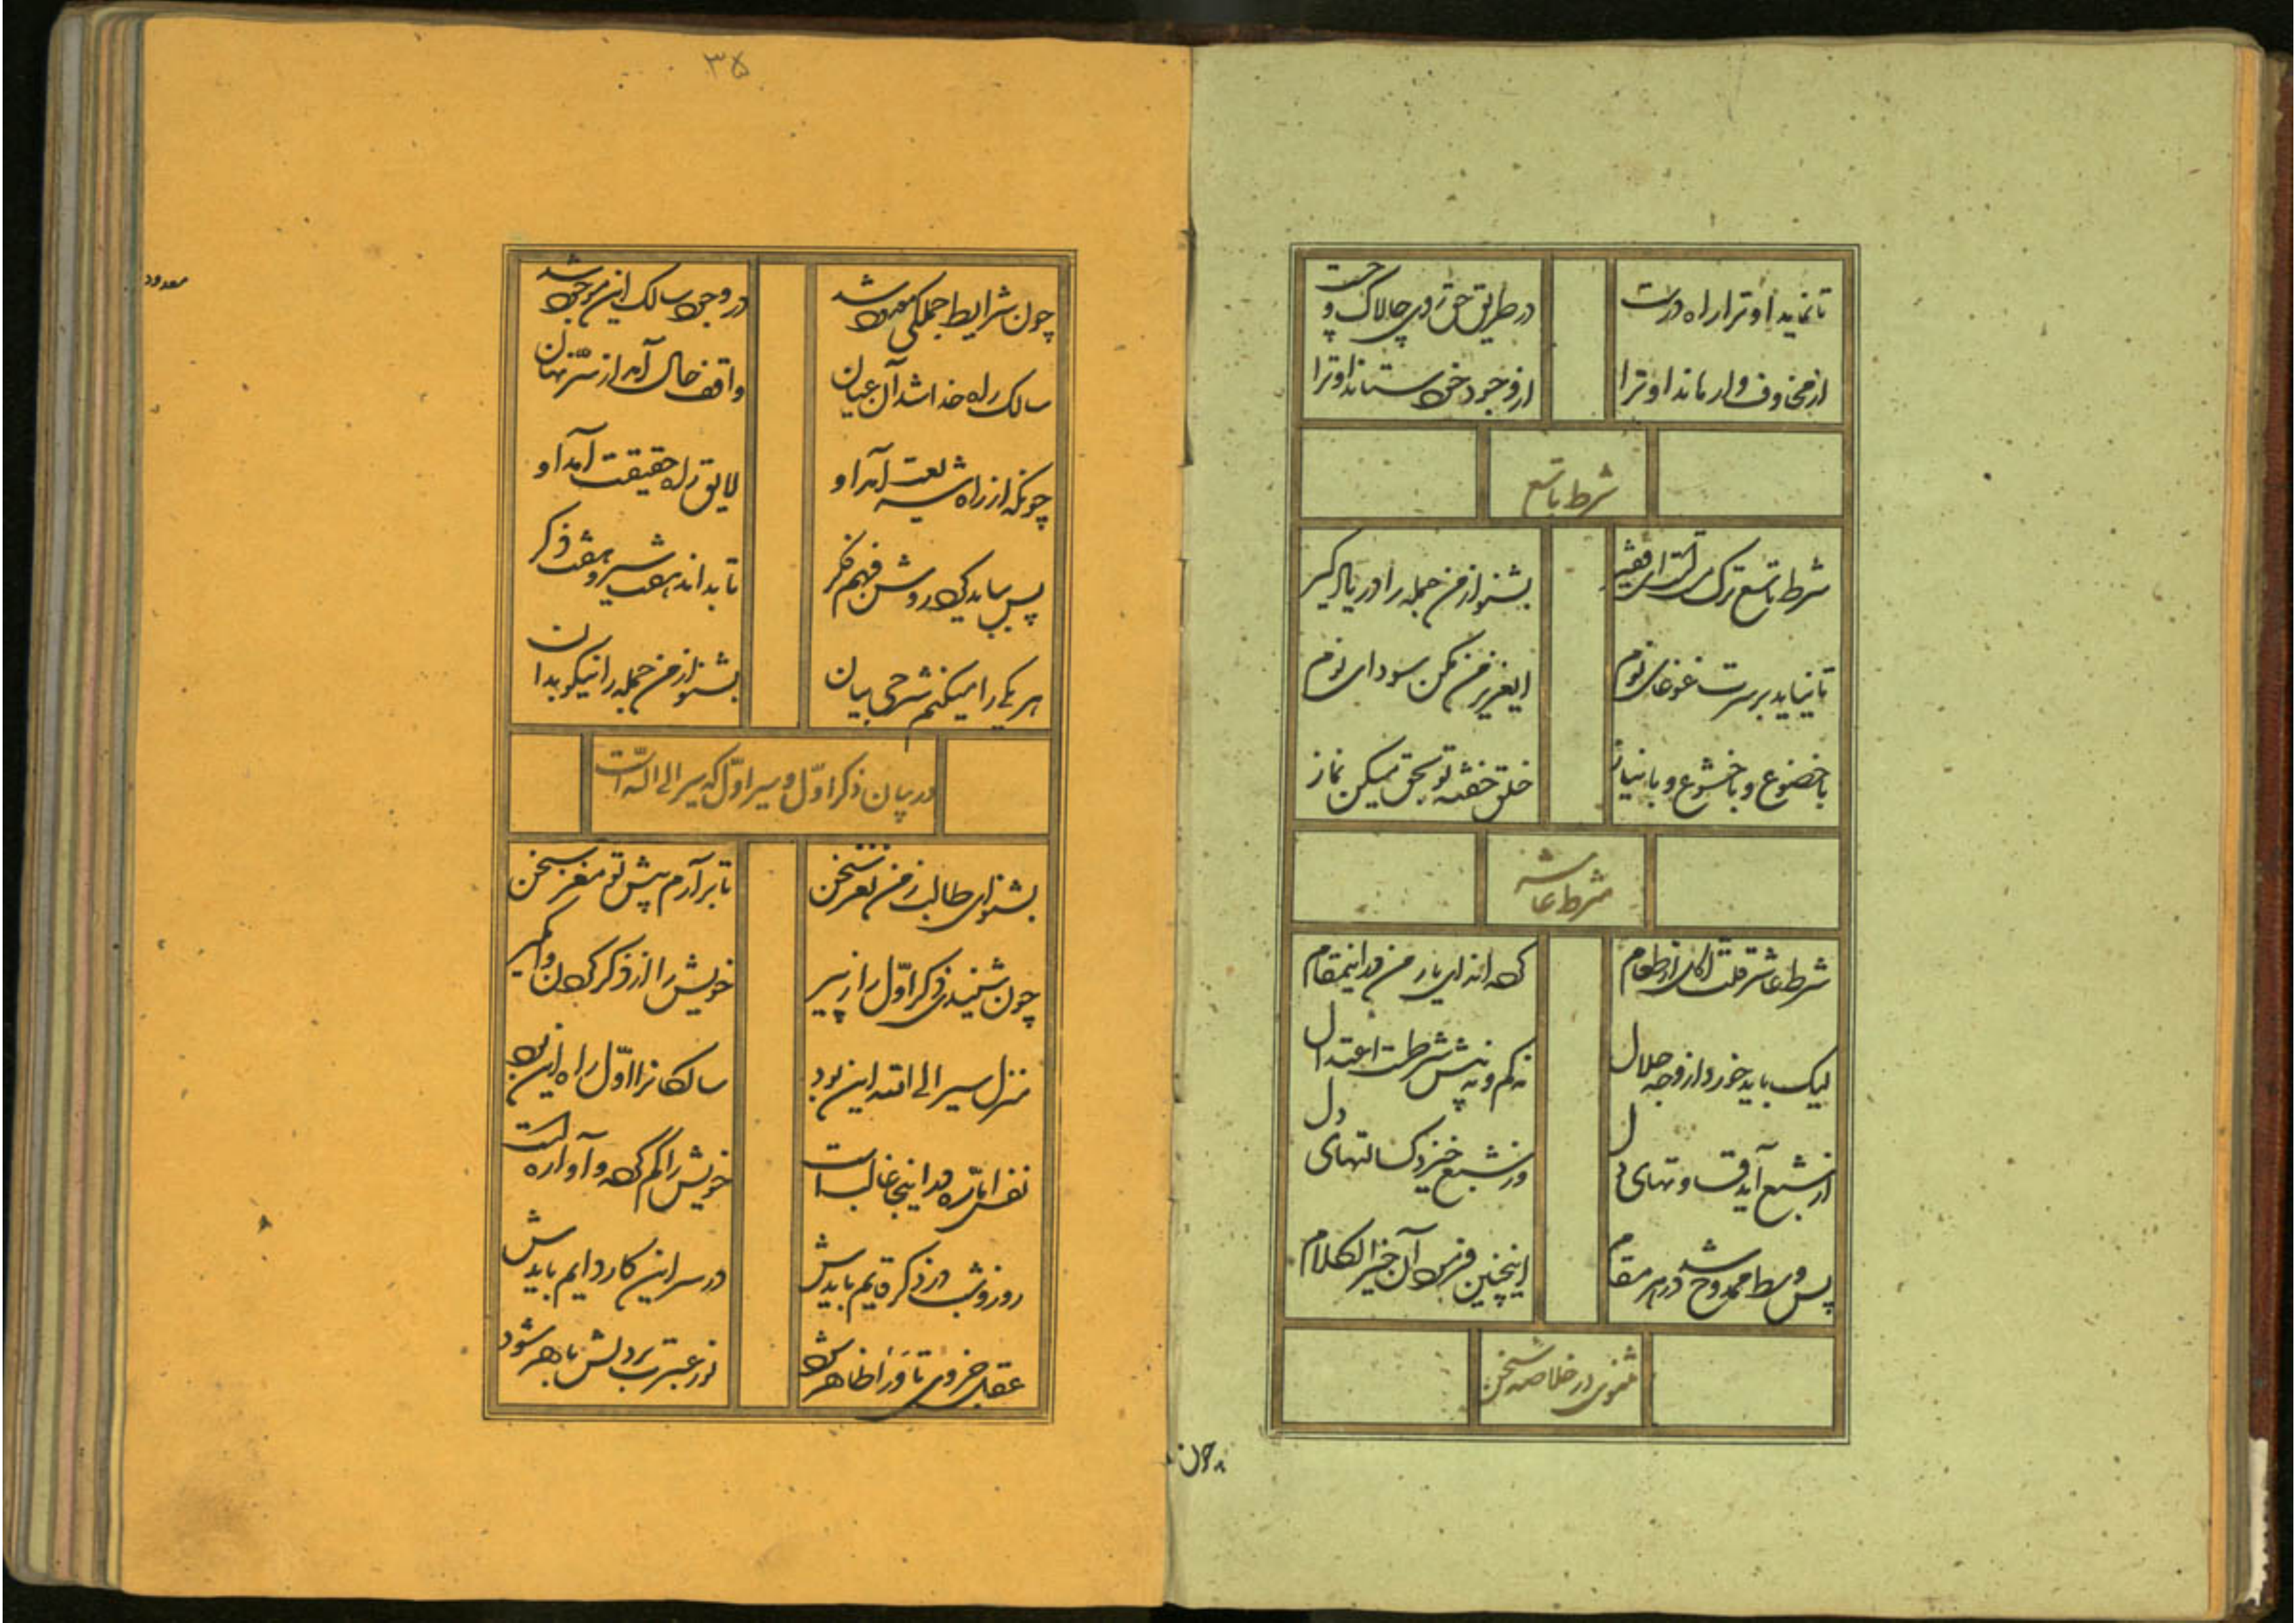 تا نماید او ترا راه درست در طریق حق روی چالاک و چست
از مخاوف وارهاند او ترا از وجود خود ستاند او ترا
شرط تاسع
شرط تاسع ترک است ای فقیر بشنو از من جمله را در یاد گیر
تا نیاید بر سرت غوغای نوم ایعزیز من مکن سودای نوم
با خضوع و با خشوع و با نیاز خلق خفته تو بحق میکن نماز
شرط عاشر
شرط عاشر قلت اکل از طعام ای یار من در اینمقام
لیک باید خورد از وجه حلال نه کم و نه بیش شرطست اعتدال
از شبع آید قساوتهای دل وز شبع خیزد کسالتهای دل
پس وسط ممدوح شد در هر مقام اینچنین فرمود آن خیر الکلام
مثنوی در خلاصه سخن
چون
۳۵
معدود
چون شرایط جملگی معدود شد در وجود سالک این موجود شد
سالک راه خدا شد آن عیان واقف حال آمد از سر نهان
چونکه از راه شریعت آمد او لایق راه حقیقت آمد او
پس بباید کرد روشن فهم و فکر تا بداند هفت سیر و هفت ذکر
هر یکی را میکنم شرحی بیان بشنو از من جمله را نیکو بدان
در بیان ذکر اوّل و سیر اوّل که سیر الی الله است
بشنو ای طالب ز من نغز سخن تا برآرم پیش تو مغز سخن
چون شنیدی ذکر اوّل را ز پیر خویش را از ذکر کردن وا مگیر
منزل سیر الی الله این بود سالکانرا اوّل راه این بود
نفس امّاره در اینجا غالب است خویش را گم کرده و آواره است
روز و شب در ذکر قایم بایدش در سر این کار دایم بایدش
عقل جزوی تا ورا ظاهر شود نور عبرت بر دلش باهر شود